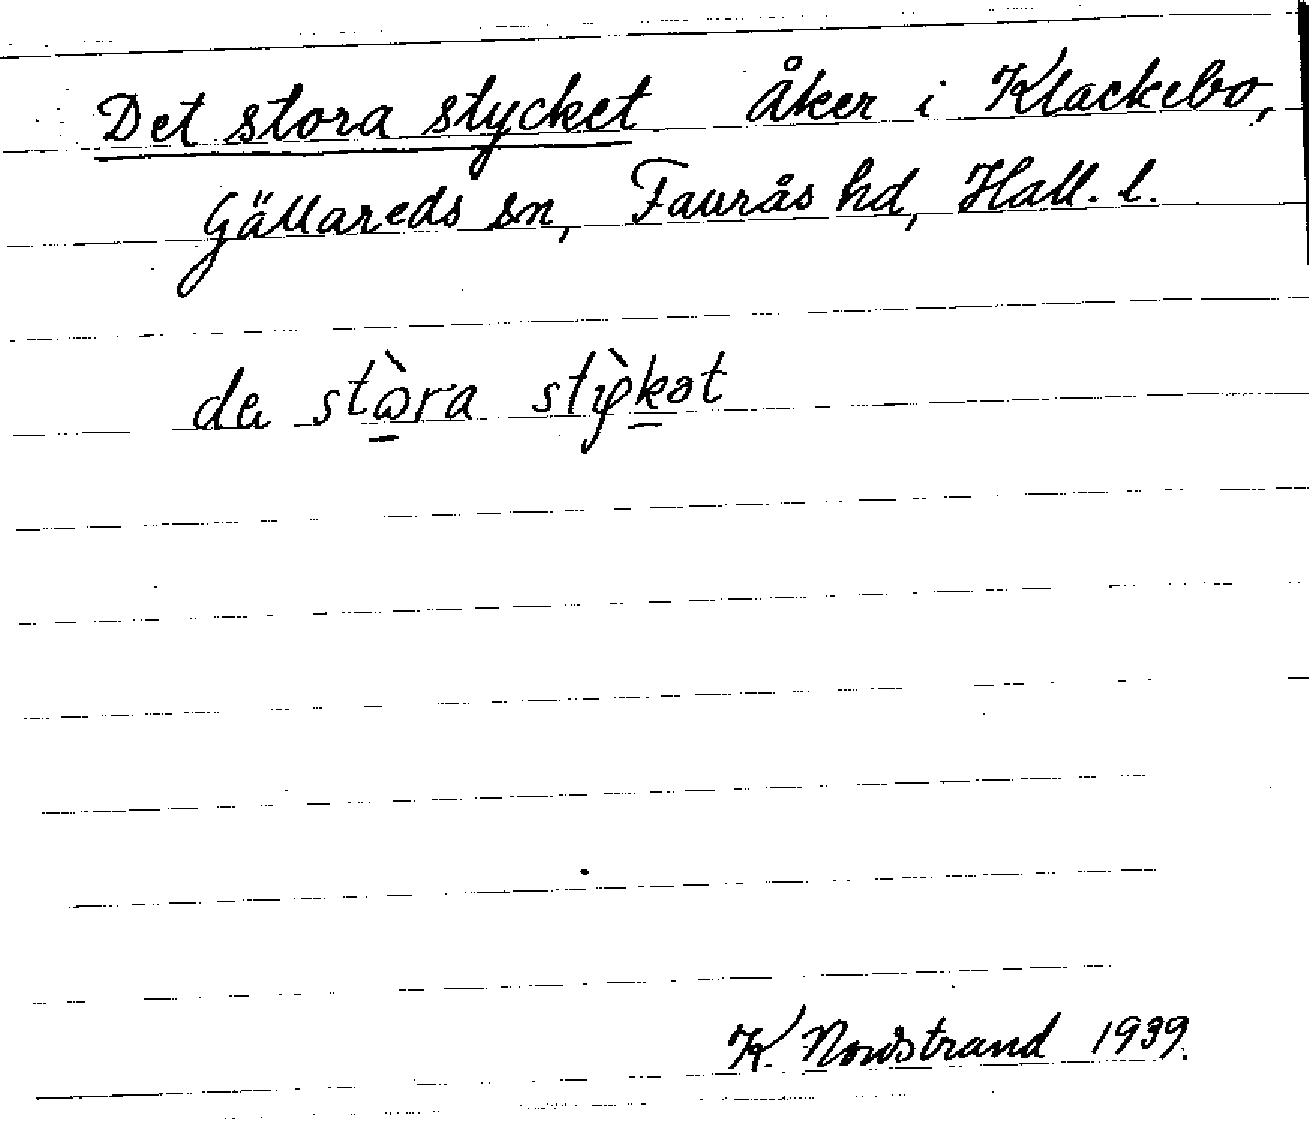 Det stora stycket åker i Klackebo,
Gällareds sn, Faurås hd, Hall. l.
da stòra stỳkət
K. Nordstrand 1939.